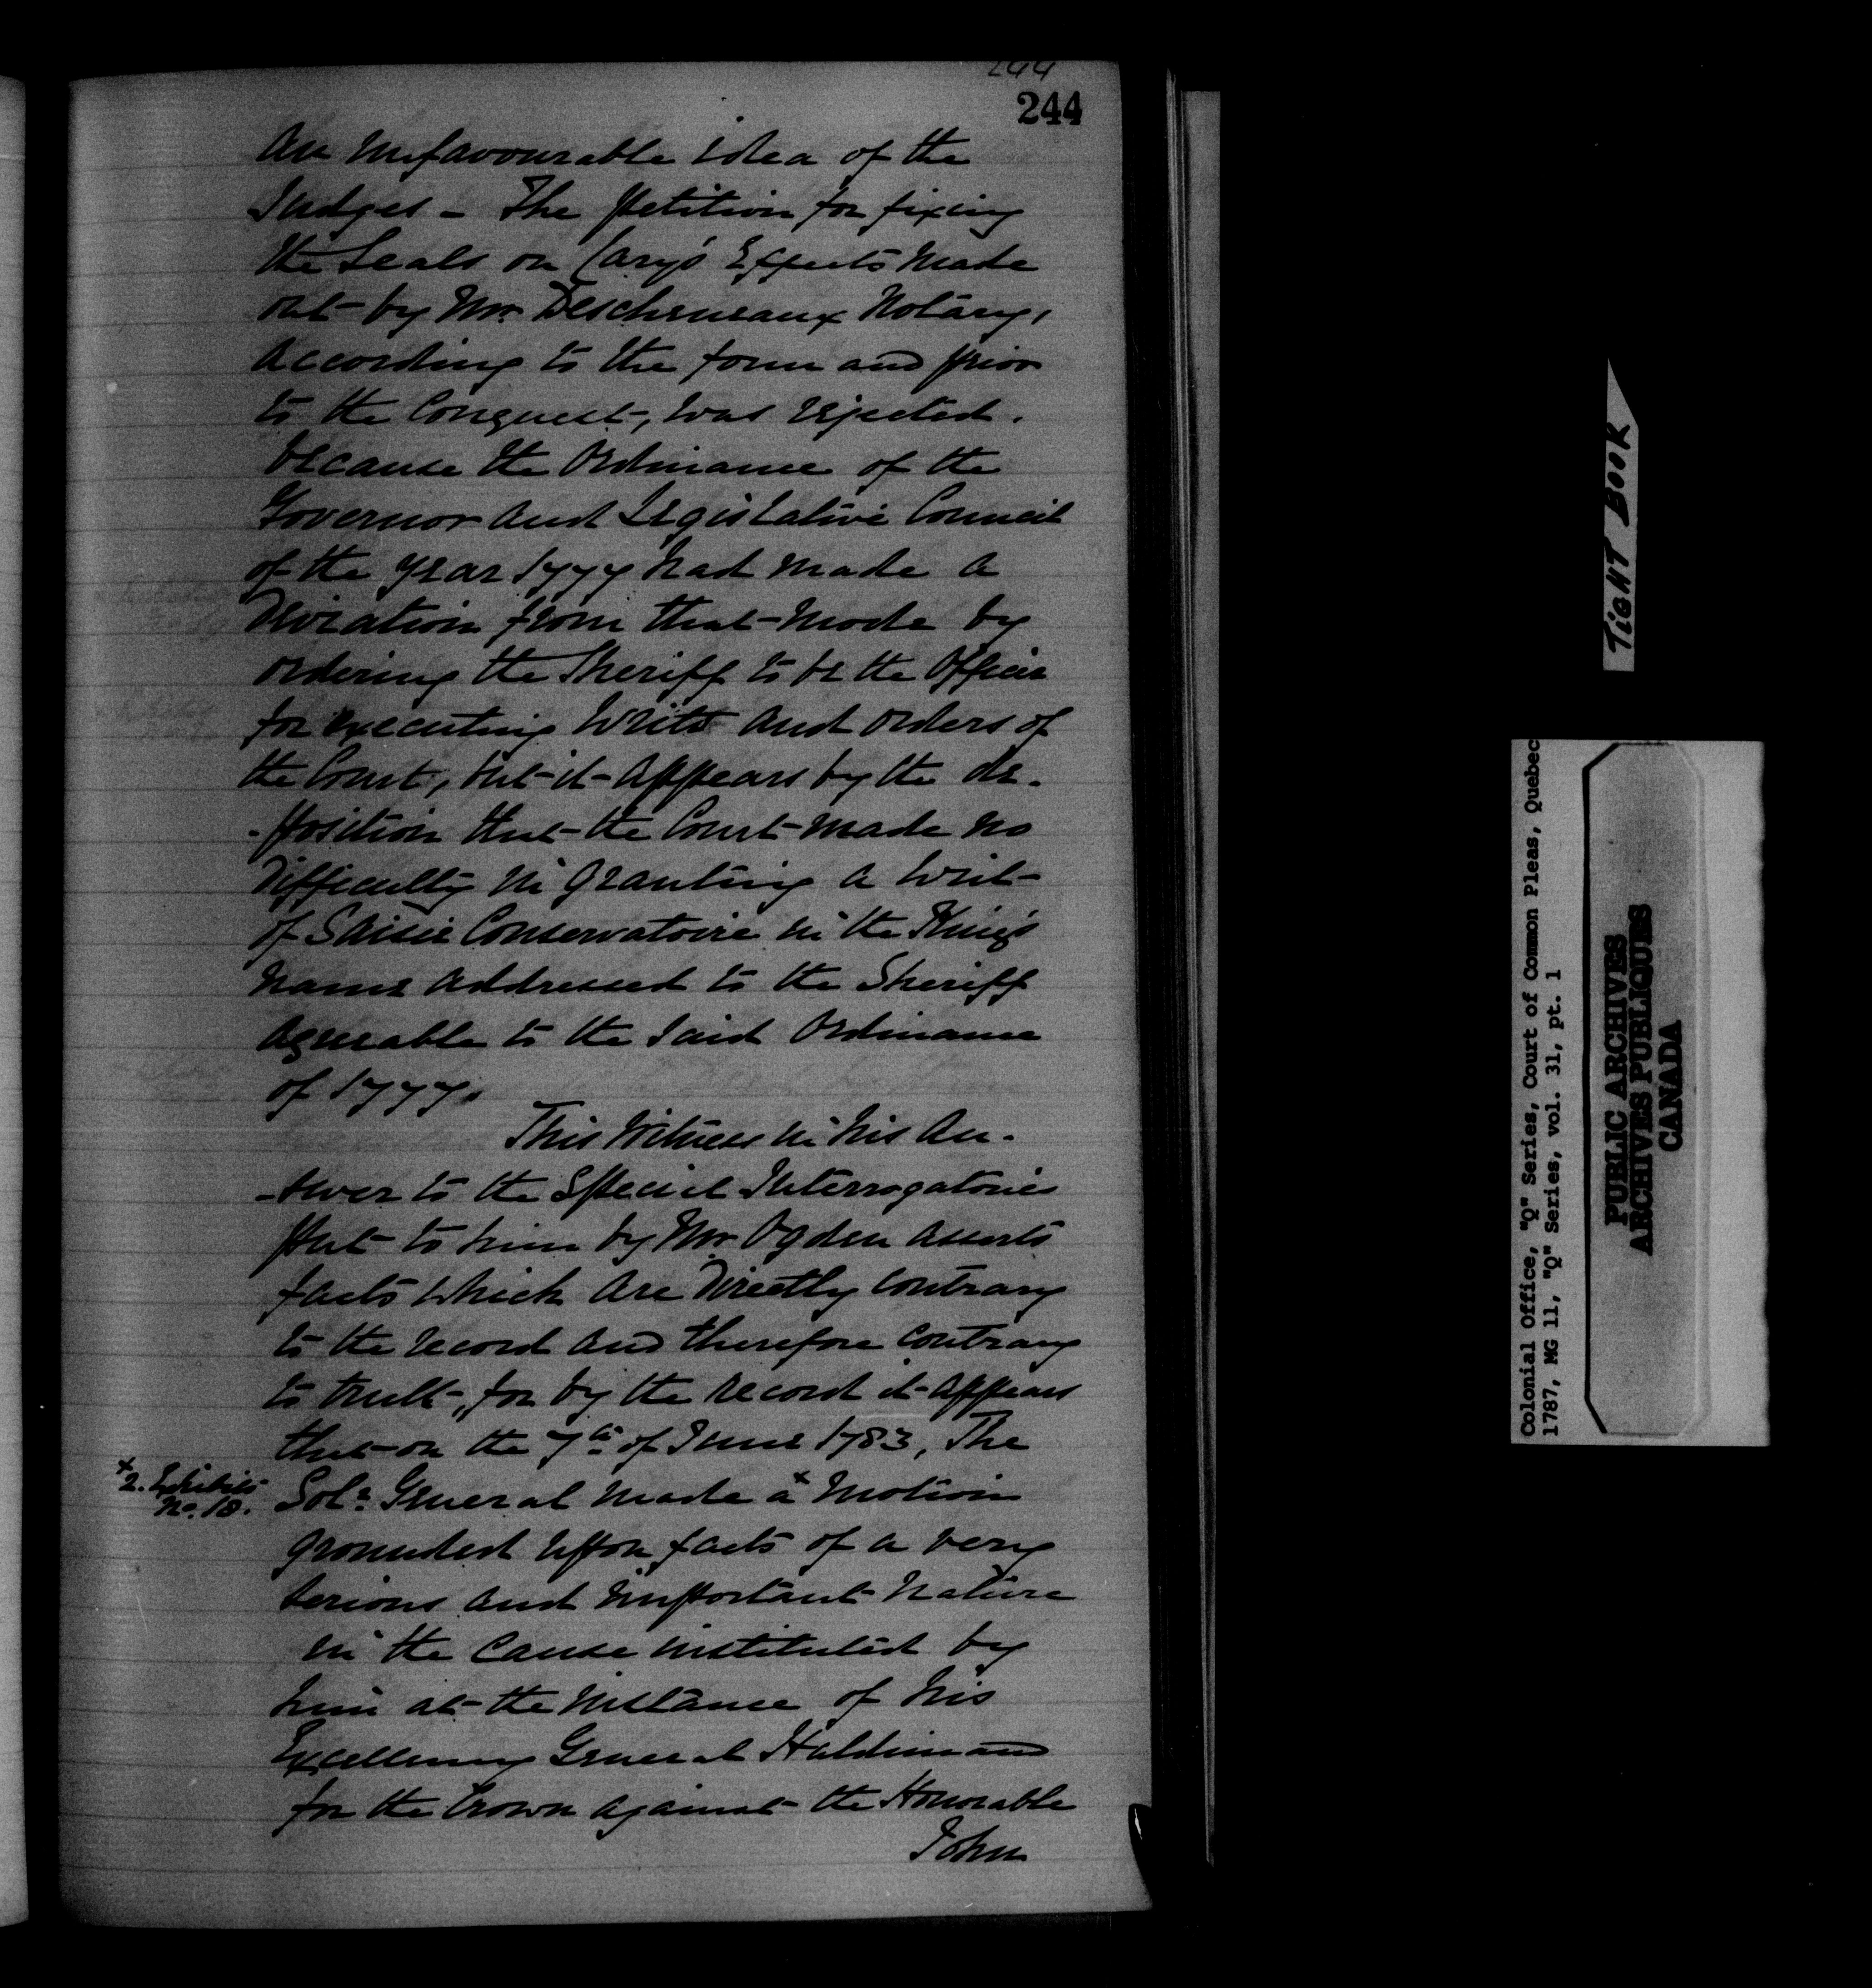 244
244
an unfavourable idea of the
Judges – The petition for fixing
the Seals on Cary's Effects made
out by Mr. Descheneaux Notary,
according to the form and prior
to the Conquest, was rejected.
because the Ordinance of the
Governor and Legislative Council
of the year 1777 had made a
Deviation from that mode by
ordering the Sheriff to be the Officer
for executing Writs and orders of
the Court, but it appears by the de-
-position that the Court made no
Difficulty in granting a Writ
of Saisie Conservatoire in the King's
name addressed to the Sheriff
agreeable to the said Ordinance
of 1777.
This Witness in his An-
-swer to the Special Interrogatories
put to him by Mr Ogden asserts
facts which are Directly contrary
to the record and therefore contrary
to truth, for by the record it appears
that on the 7th of June 1783, The
x 2. Exhibits No. 18.
Solr General made a x motion
grounded upon facts of a very
serious and important nature
in the cause instituted by
him at the instance of his
Excellency General Haldimand
for the Crown against the Honorable
John
TIGHT BOOK
Colonial Office, "Q" Series, Court of Common Pleas, Quebec
1787, MG 11, "Q" Series, vol. 31, pt. 1
PUBLIC ARCHIVES
ARCHIVES PUBLIQUES
CANADA